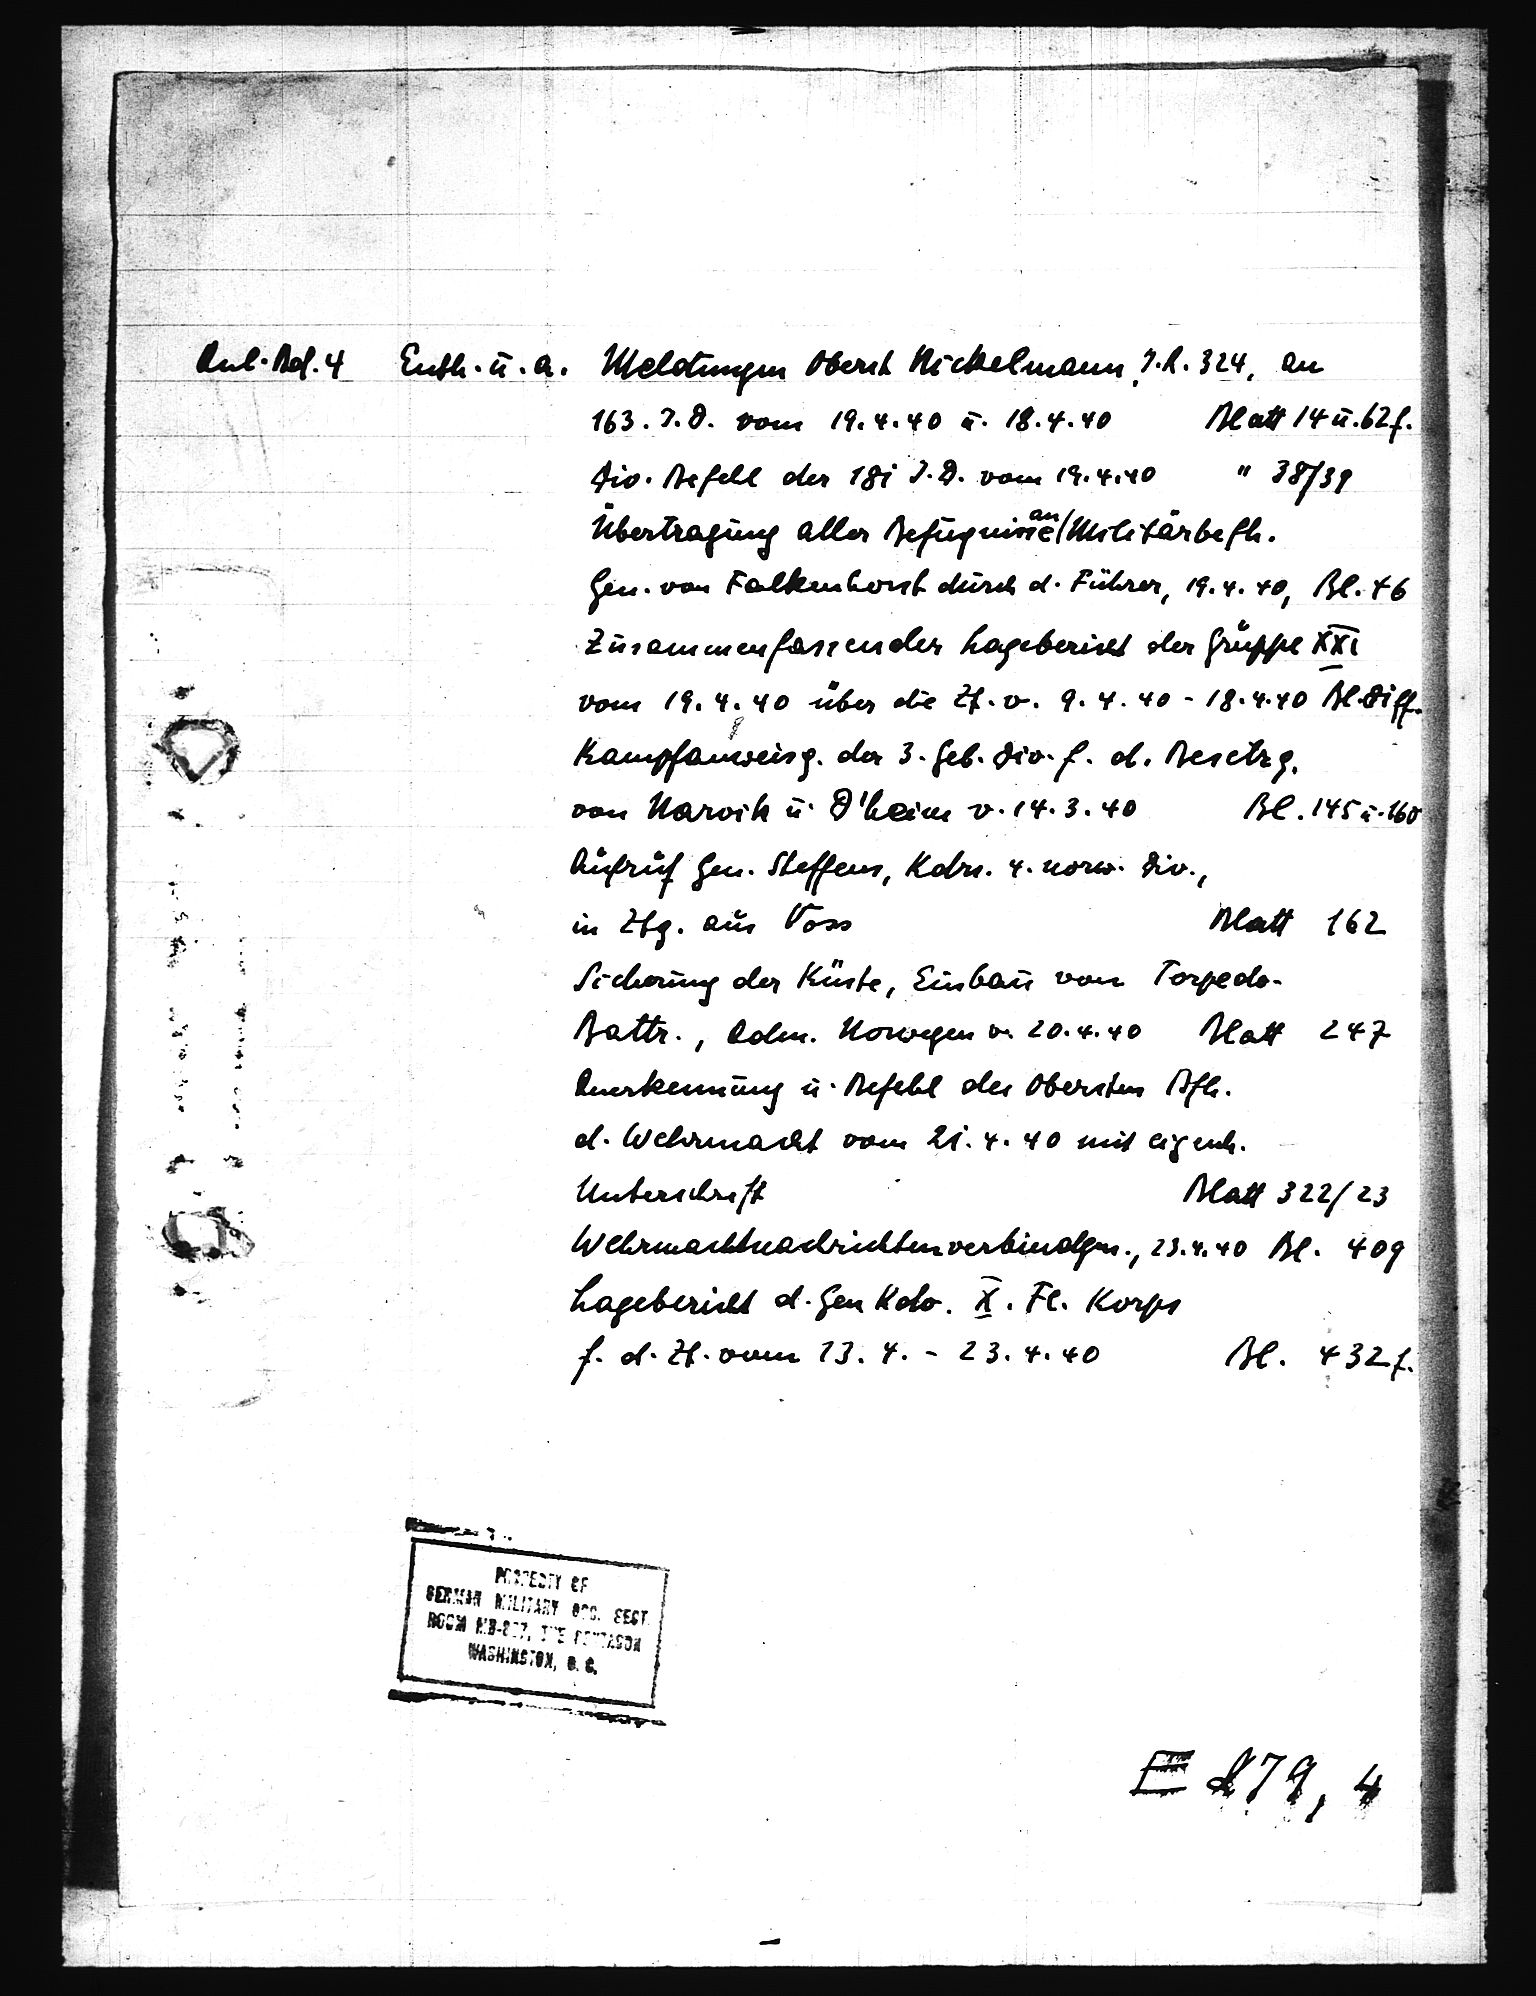 Anl. Bd. 4 Enth. u. a. Meldungen Oberst Nickelmann, I.R. 324, an
163. I.D. vom 19.4.40 u. 18.4.40 Blatt 14 u. 62 f.
Div. Befehl der 181 I.D. vom 19.4.40 " 38/39
Übertragung aller Befugnisse an Militärbefh.
Gen. von Falkenhorst durch d. Führer, 19.4.40, Bl. 46
Zusammenfassender Lagebericht der Gruppe XXI
vom 19.4.40 über die Zt. v. 9.4.40 - 18.4.40 Bl.
Kampfanweisg. der 3. Geb. Div. f. d. Besetzg.
von Narvik u. D'heim v. 14.3.40 Bl. 145 u. 160
Aufruf Gen. Steffens, Kdrs. 4. norw. Div.,
in Ztg. aus Voss Blatt 162
Sicherung der Küste, Einbau von Torpedo-
Battr., Adm. Norwegen v. 20.4.40 Blatt 247
Anerkennung u. Befehl des Obersten Bfh.
d. Wehrmacht vom 21.4.40 mit eigenh.
Unterschrift Blatt 322/23
Wehrmachtnachrichtenverbindgn., 23.4.40 Bl. 409
Lagebericht d. Gen Kdo. X. Fl. Korps
f. d. Zt. vom 13.4. - 23.4.40 Bl. 432 f.
PROPERTY OF
GERMAN MILITARY DOC. SECT.
ROOM MB-867, THE PENTAGON
WASHINGTON, D. C.
E 279, 4